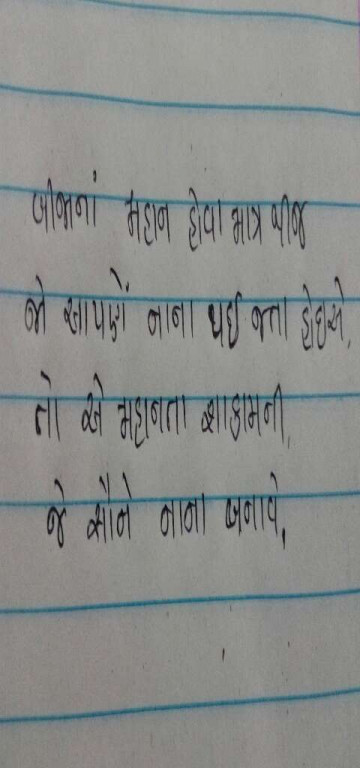 બીજાનાં મહાન હોવા માત્ર થીજ
જો આપણે નાના થઈ જતા હોઇએ,
તો એ મહાનતા શાકામની,
જે સૌને નાના બનાવે,